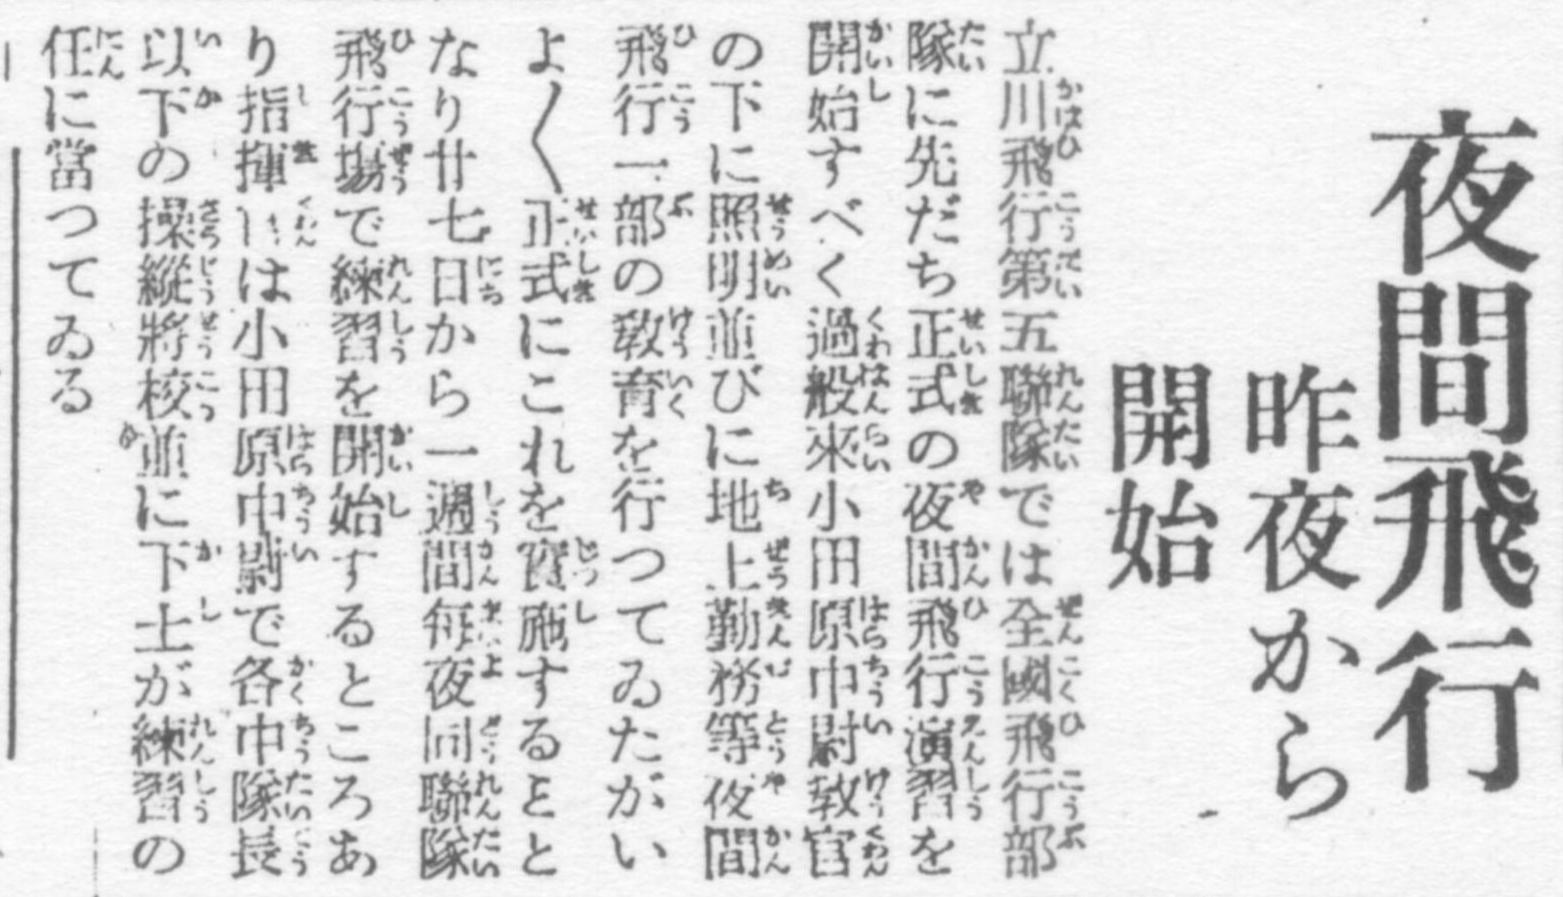 夜間飛行
昨夜から
開始
立川飛行第五聯隊では全國飛行部
隊に先だち正式の夜間飛行演習を
開始すべく過般來小田原中尉敎官
の下に照明並びに地上勤務等夜間
飛行一部の敎育を行つてゐたがい
よ〱正式にこれを實施することと
なり廿七日から一週間每夜同聯隊
飛行場で練習を開始するところあ
り指揮は小田原中尉で各中隊長
以下の操縱將校並に下士が練習の
任に當つてゐる